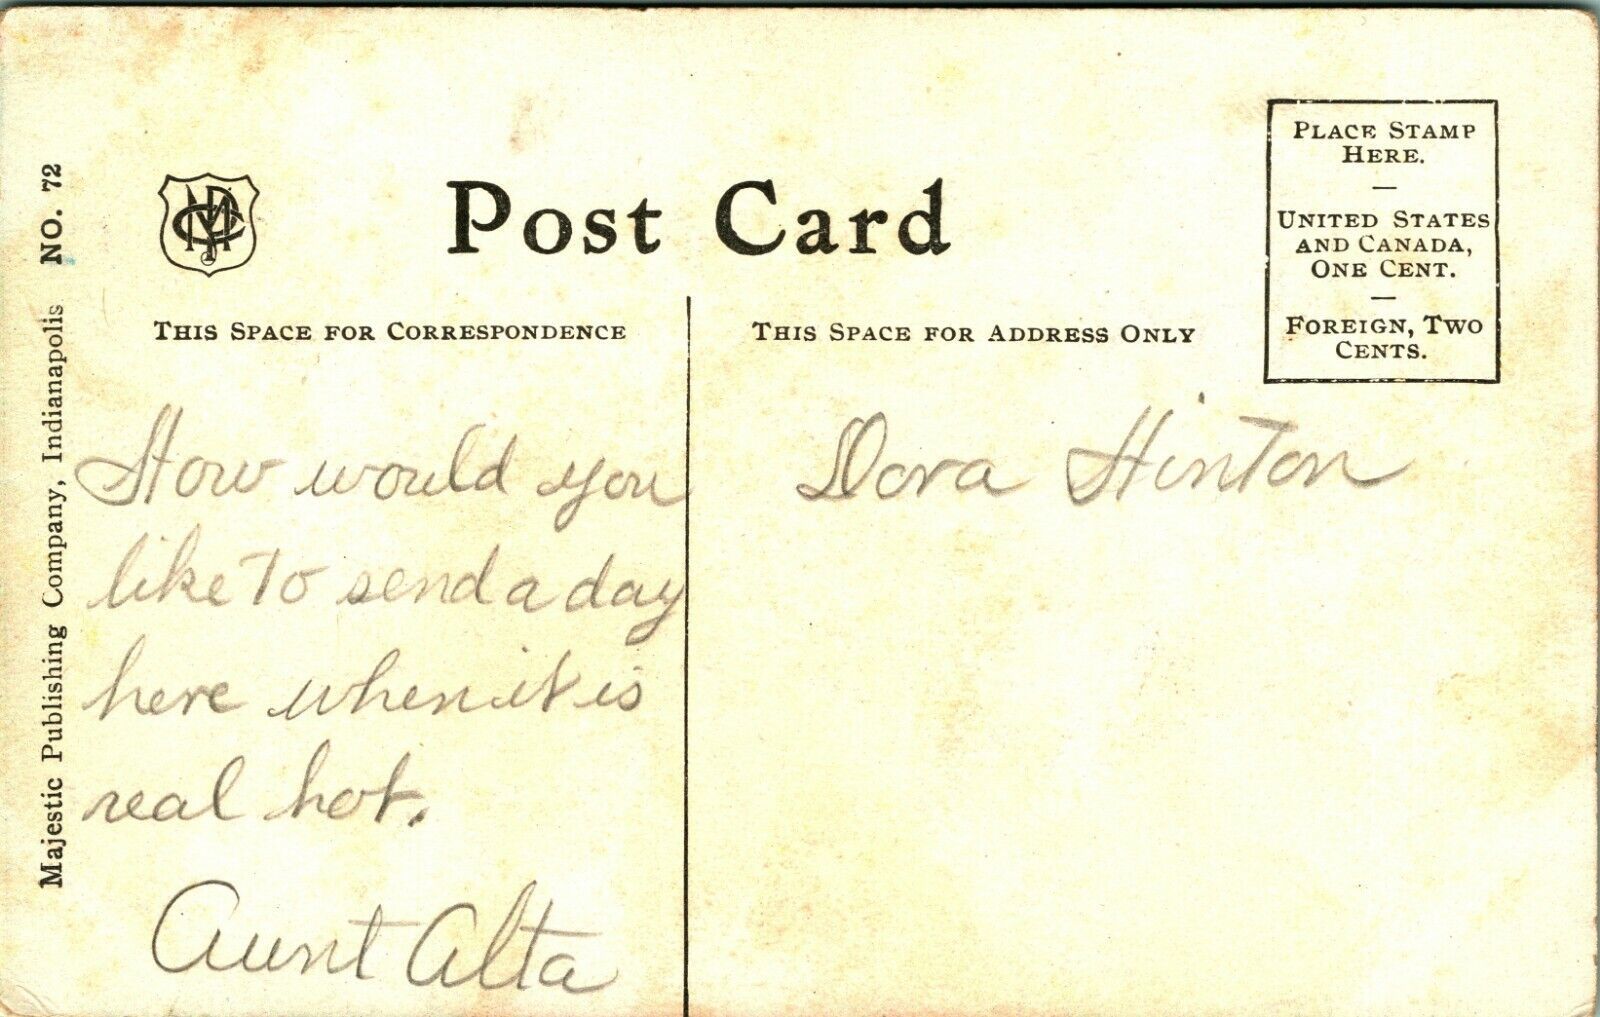 Post Card
PLACE STAMP
HERE.
—
UNITED STATES
AND CANADA,
ONE CENT.
—
FOREIGN, TWO
CENTS.
THIS SPACE FOR CORRESPONDENCE
THIS SPACE FOR ADDRESS ONLY
Majestic Publishing Company, Indianapolis NO. 72
How would you
like to send a day
here when it is
real hot.
Aunt Alta
Dora Hinton